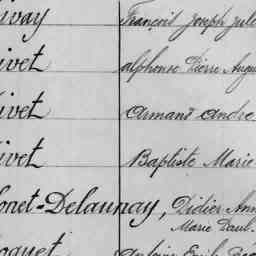 ivay François Joseph Jule
ivet Alphonse Pierre Augu
ivet Armand Andre
ivet Baptiste Marie
onet-Delaunay, Didier Ann
Marie Paul.
oquet Antoine Emile